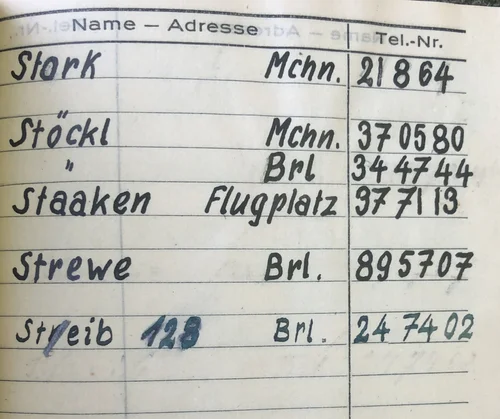 Name – Adresse Tel.-Nr.
Stork Mchn. 21 8 64
Stöckl Mchn. 37 05 80
" Brl 34 47 44
Staaken Flugplatz 37 71 13
Strewe Brl. 89 57 07
Streib 128 Brl. 24 74 02